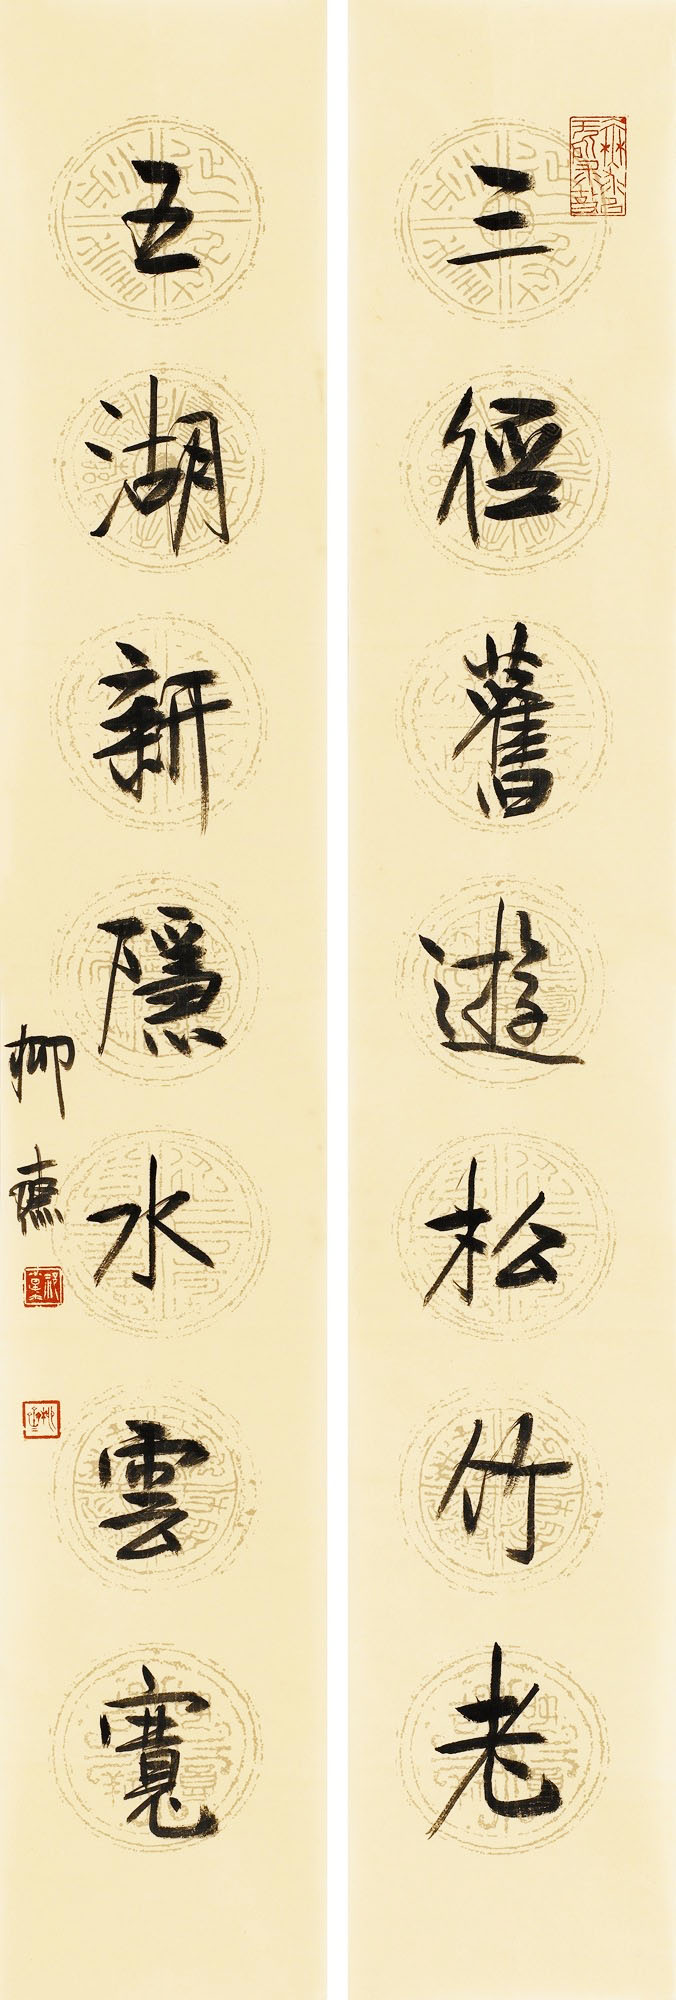 三徑舊遊松竹老
五湖新隱水雲寬